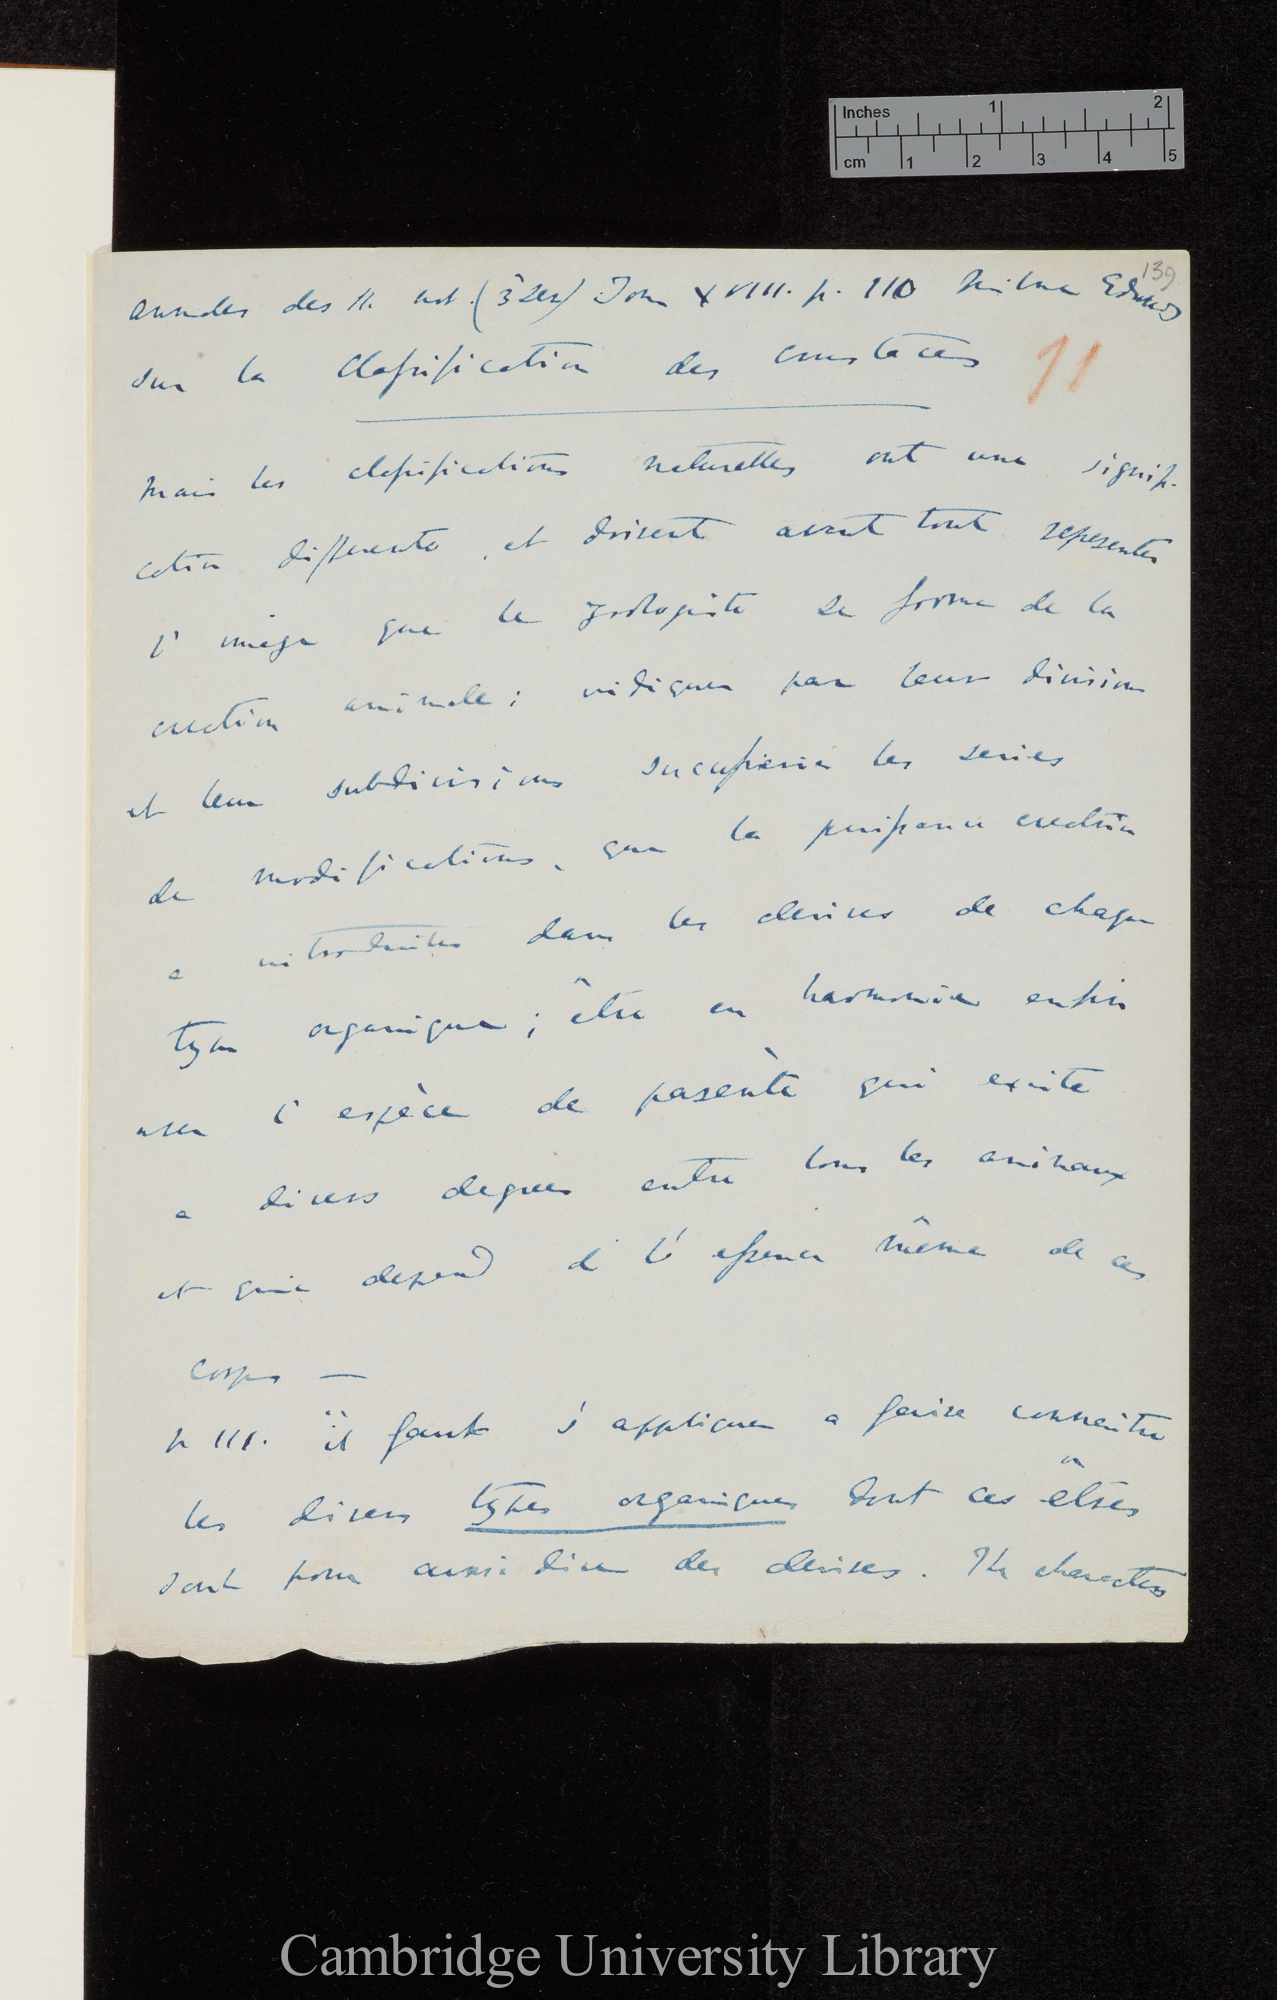 Inches 1 2
cm 1 2 3 4 5
139
Annales des Sc. nat. (3 Ser) Tom XVIII. p. 110 Milne Edwards
sur la Classification des crustaces
11
Mais les classifications naturelles ont une signifi-
cation differente, et doivent avant tout representer
l'image que le zoologiste se forme de la
creation animale; indiquer par leur division
et leur subdivisions les series
de modifications, que la puissance creatrice
a introduites dans les derives de chaque
type organique; être en harmonie enfin
avec l'espèce de parente qui existe
a divers degrees entre tous les animaux
et qui depend de l'essence même de ces
corps —
p 111. il faut s'appliquer a faire connaitre
les divers types organiques dont ces êtres
sont pour ainsi dire des derives. The characters
Cambridge University Library